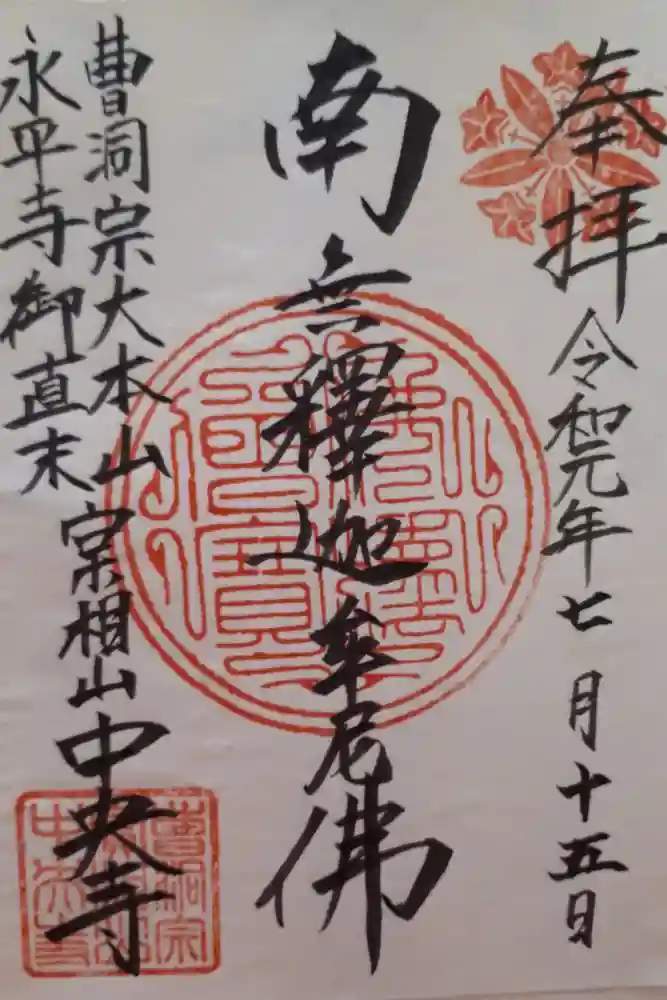 奉拝
令和元年七月十五日
南無釋迦牟尼佛
曹洞宗大本山
永平寺御直末
宗相山
中央寺